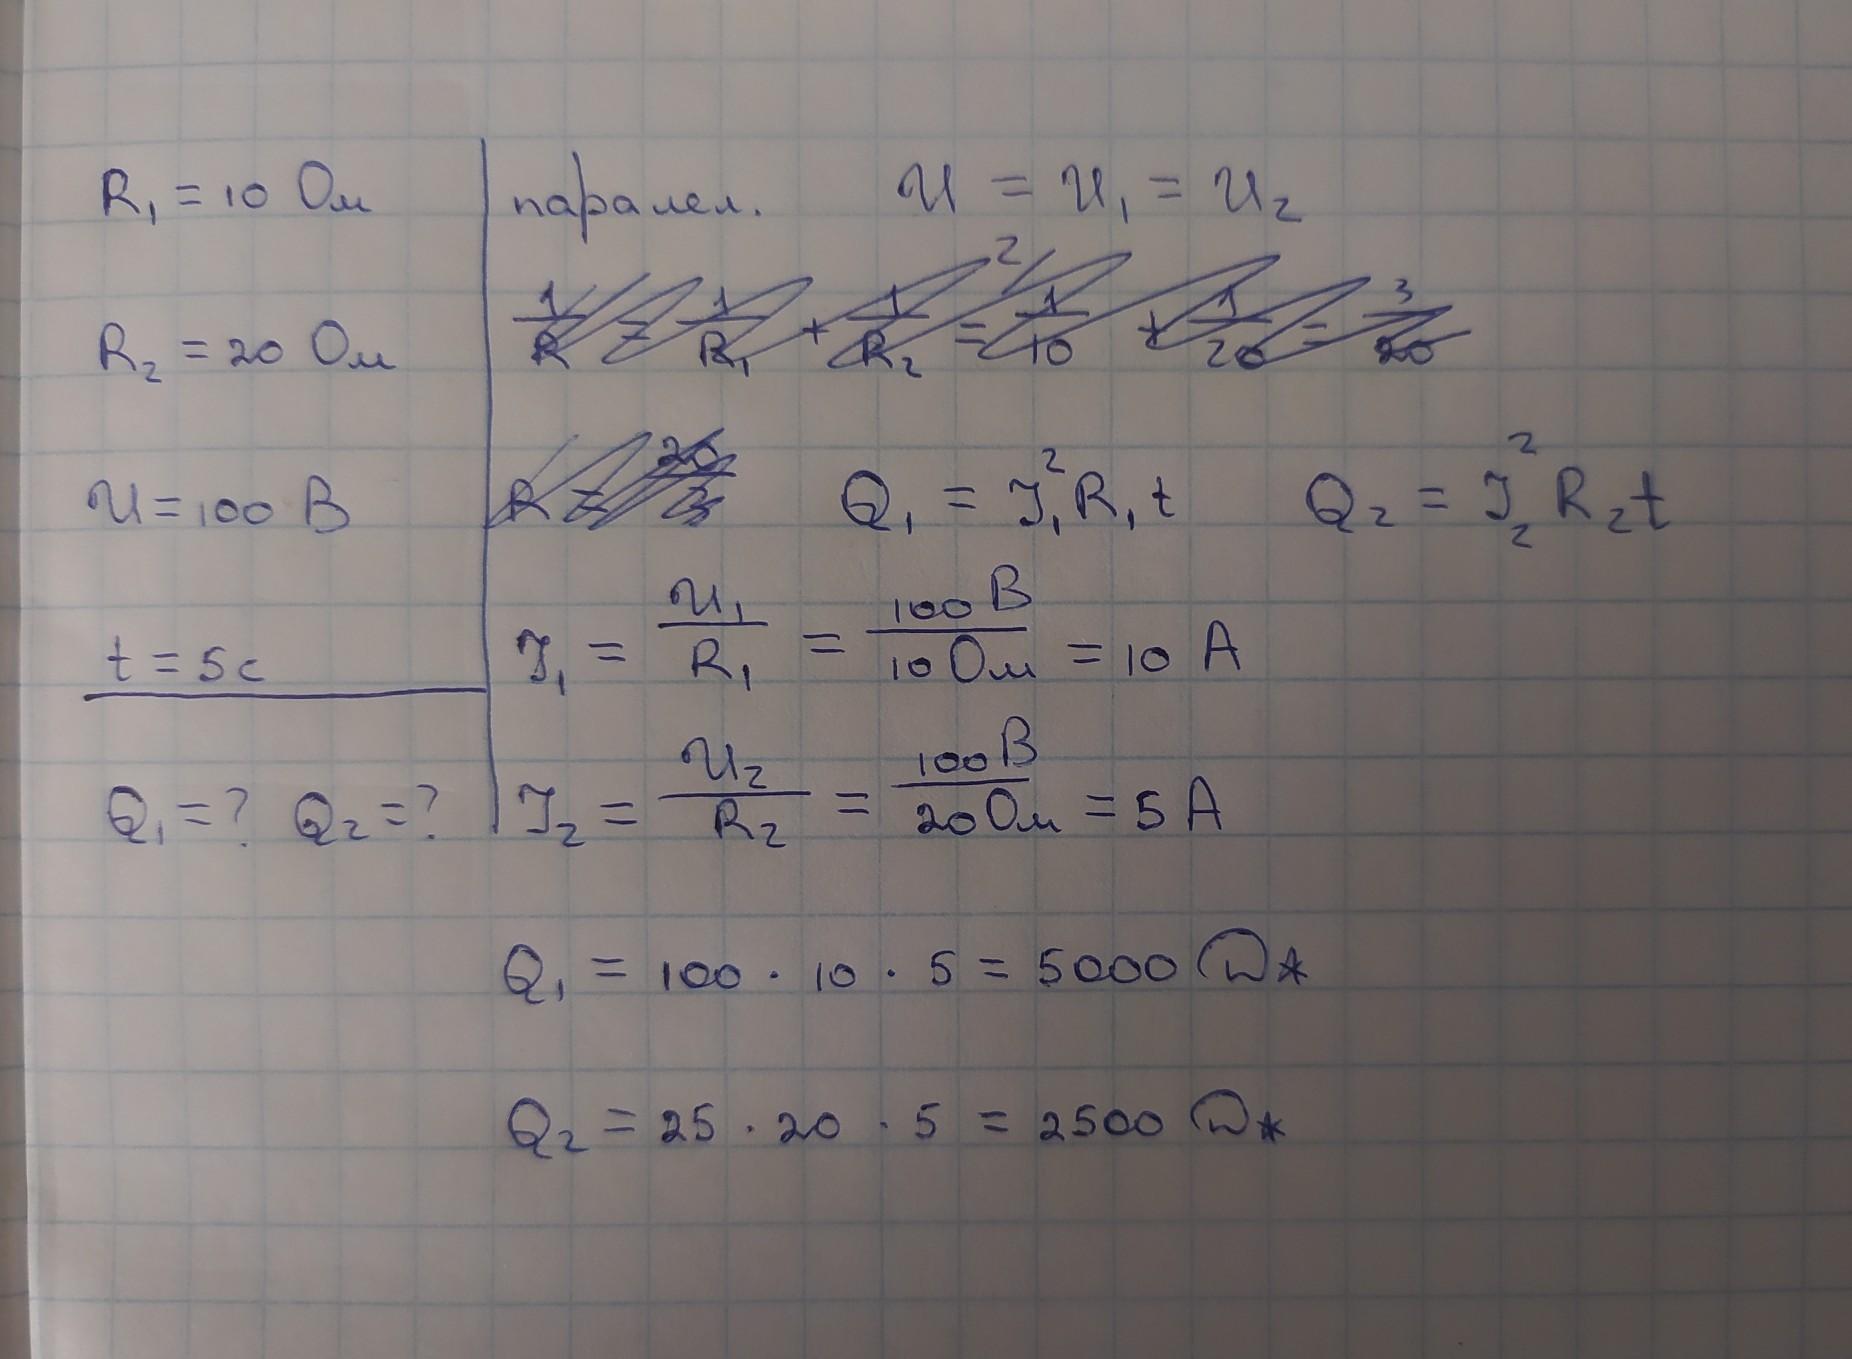 R₁ = 10 Ом
R₂ = 20 Ом
U = 100 В
t = 5 с
Q₁ = ? Q₂ = ?
паралел. U = U₁ = U₂
1/R = 1/R₁ + 1/R₂ = 1/10 + 1/20 = 3/20
R = 20/3 Q₁ = I₁²R₁t Q₂ = I₂²R₂t
I₁ = U₁/R₁ = 100 В/10 Ом = 10 А
I₂ = U₂/R₂ = 100 В/20 Ом = 5 А
Q₁ = 100 · 10 · 5 = 5000 Дж
Q₂ = 25 · 20 · 5 = 2500 Дж